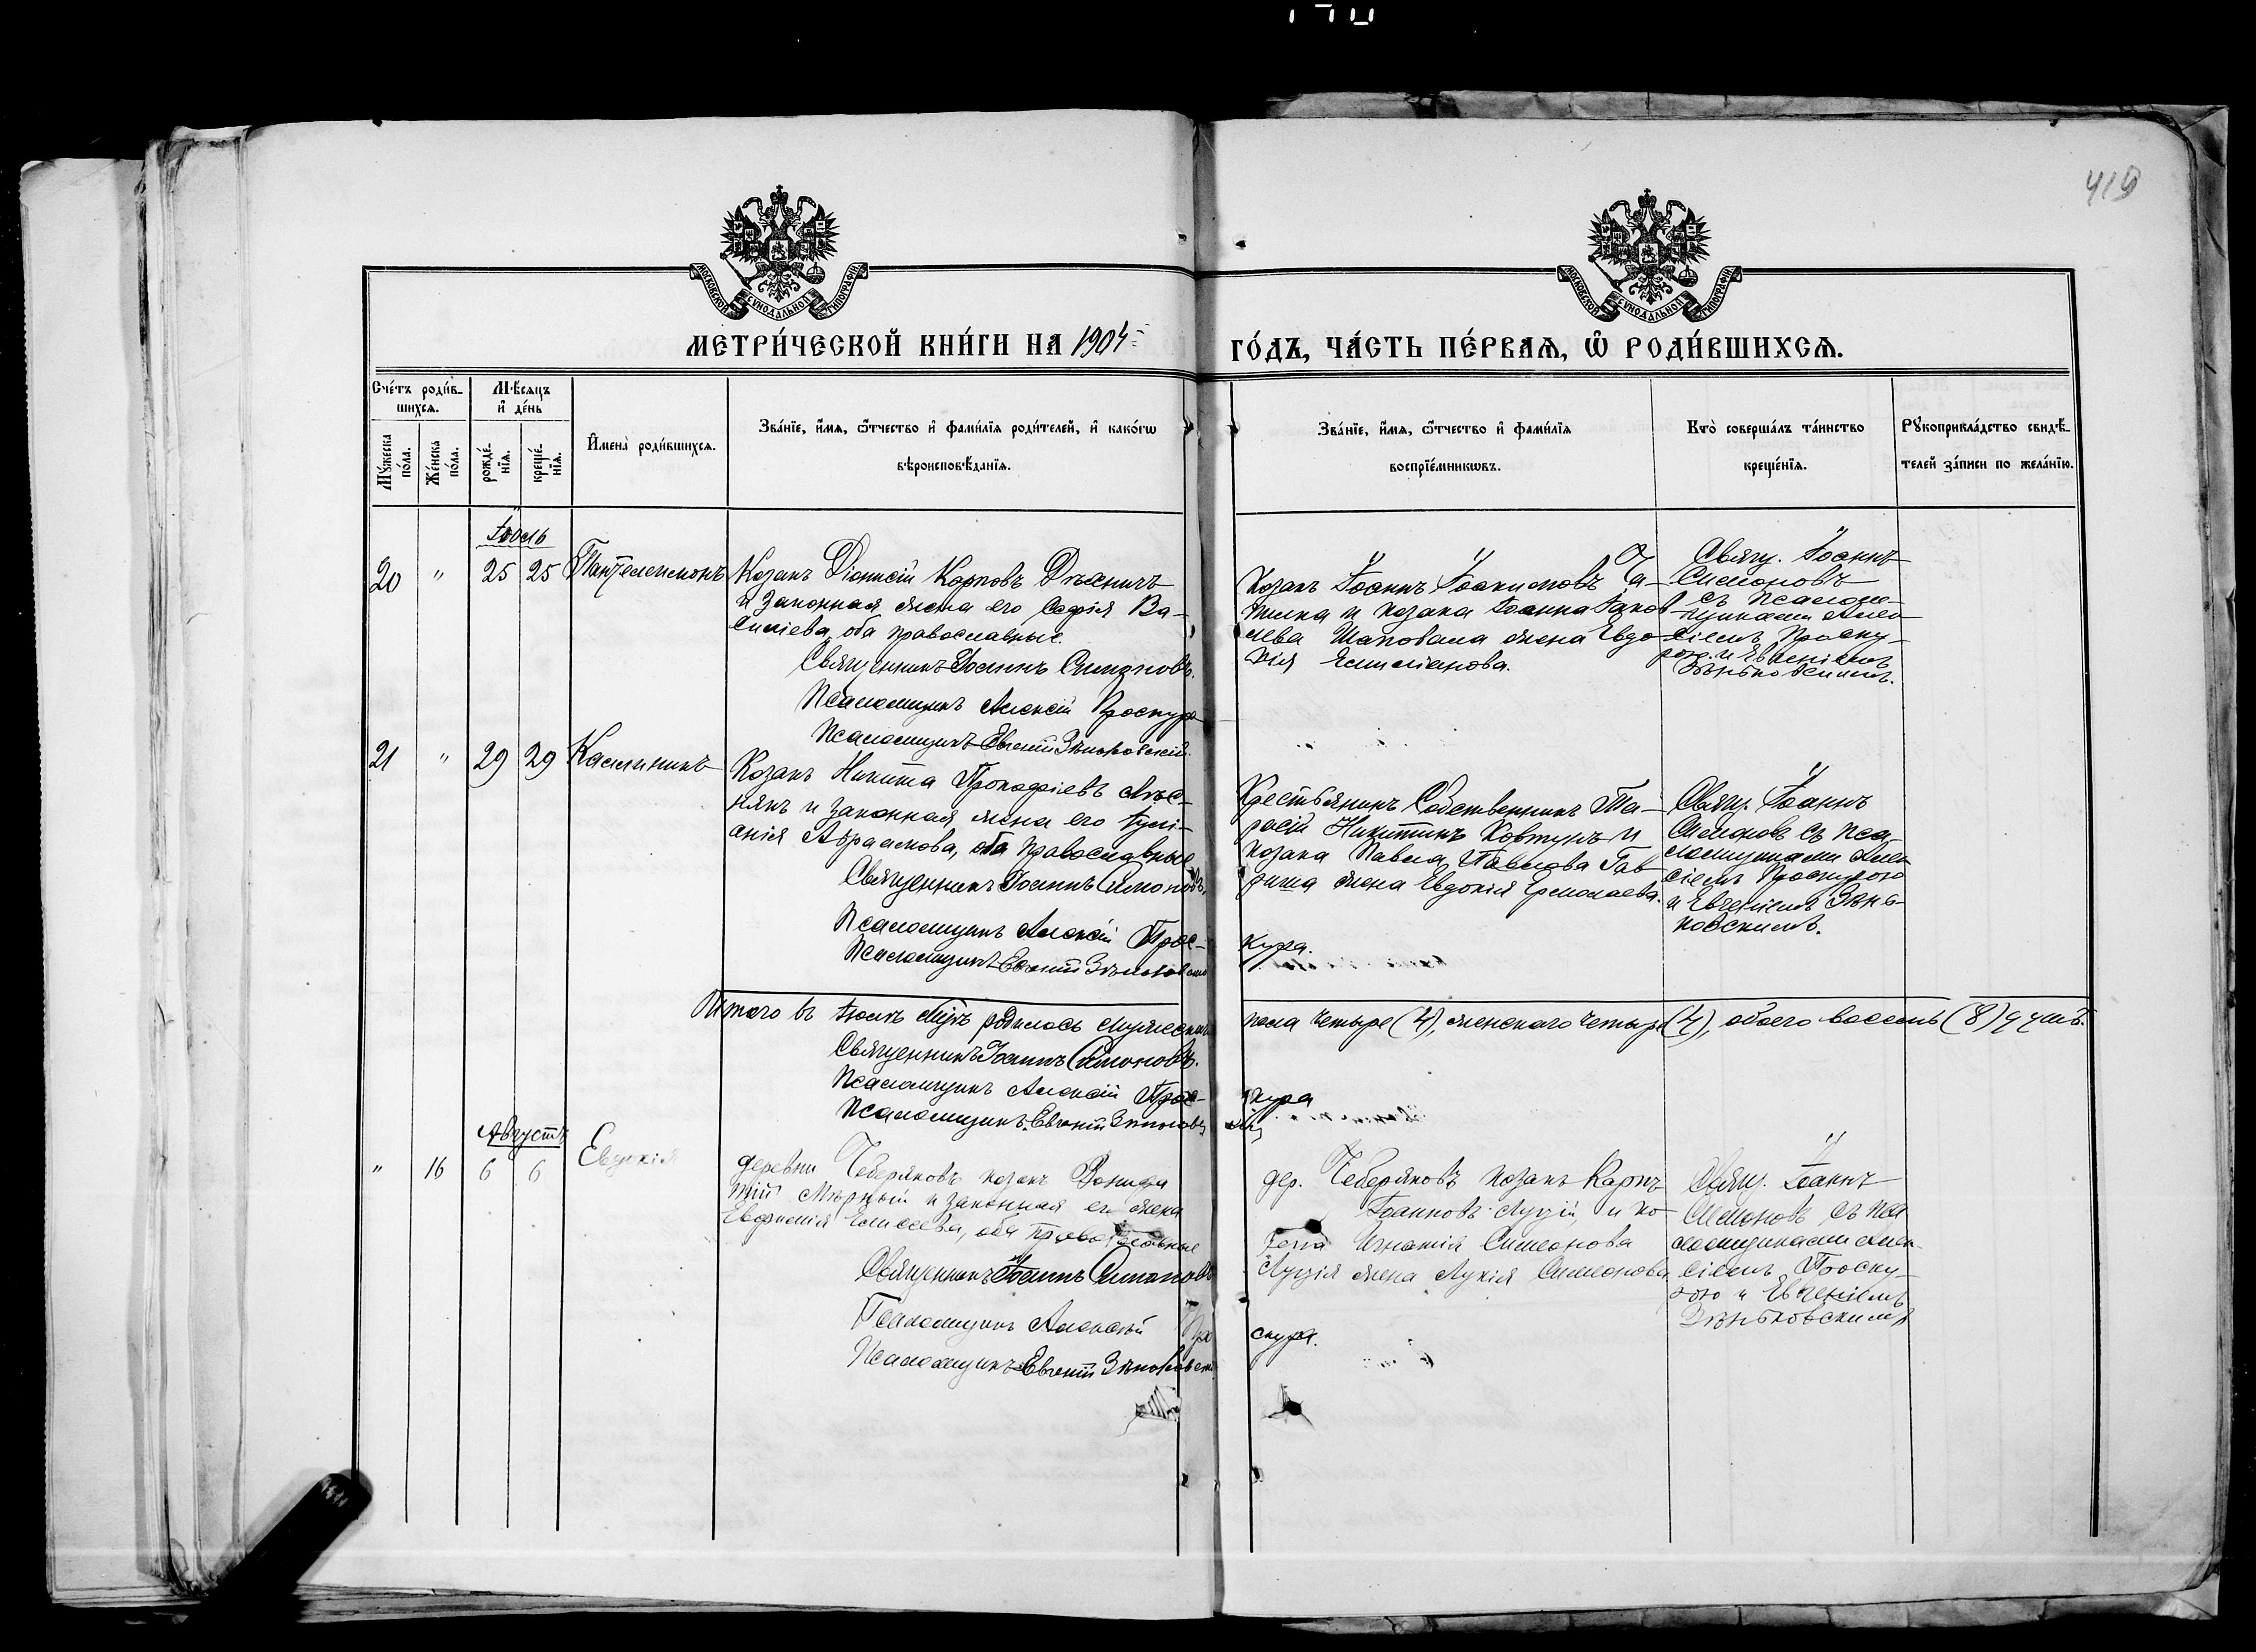 419
МОСКОВСКОЙ СУНОДАЛЬНОЙ ТИПОГРАФІИ
МОСКОВСКОЙ СУНОДАЛЬНОЙ ТИПОГРАФІИ
МЕТРИ́ЧЕСКОЙ КНИ́ГИ НА 1904
ГО́ДЪ, ЧА́СТЬ ПЕ́РВАѦ, Ѿ РОДИ́ВШИХСѦ.
Сче́тъ роди́в-
шихсѧ.
Мѣ́сѧцъ
и҆ де́нь
Мꙋ́жеска
по́ла.
Же́нска
по́ла.
рожде́-
нїѧ.
креще́-
нїѧ.
И҆мена̀ роди́вшихсѧ.
Зва́нїе, и҆́мѧ, ѻ҆́тчество и҆ фами́лїѧ роди́телей, и҆ како́гѡ
вѣроисповѣ́данїѧ.
Зва́нїе, и҆́мѧ, ѻ҆́тчество и҆ фами́лїѧ
воспрїе́мникѡвъ.
Кто̀ соверша́лъ та́инство
креще́нїѧ.
Рꙋкоприкла́дство свидѣ́-
телей за́писи по жела́нїю.
Іюль
20 " 25 25 Пантелеимонъ
Козакъ Діонисій Карповъ
и законная жена его Софія Ва-
силіева, оба православные.
Священникъ Іоаннъ Симоновъ.
Псаломщикъ Алексій Проскура
Псаломщикъ Евгеній Зѣньковскій.
Козакъ Іоаннъ Іоакимовъ
и козака Іоанна Іаков-
лева Шаповала жена Евдо-
кія Емиліанова.
Свящ. Іоаннъ
Симоновъ
съ псалом-
щиками Алек-
сіемъ Проску-
рою и Евгеніемъ
Зѣньковскимъ.
21 " 29 29 Каллиникъ
Козакъ Никита Прокофіевъ Лѣс-
някъ и законная жена его Іулі-
анія Авраамова, оба православные
Священникъ Іоаннъ Симоновъ.
Псаломщикъ Алексій Прос-
кура.
Псаломщикъ Евгеній Зѣньковскій
Крестьянинъ собственникъ Та-
расій Никитинъ Ковтунъ и
козака Павла Павлова Гав-
жена Евдокія Ермолаева.
Свящ. Іоаннъ
Симоновъ съ пса-
ломщиками Алек-
сіемъ Проскурою
и Евгеніемъ Зѣнь-
ковскимъ.
Итого въ Іюлѣ м-цѣ родилось мужескаго
пола четыре (4), женскаго четыре (4), обоего восемь (8) душъ.
Священникъ Іоаннъ Симоновъ.
Псаломщикъ Алексій Прос-
кура
Псаломщикъ Евгеній Зѣньковскій
Августъ
" 16 6 6 Евдокія
деревни Чеберяковъ козакъ Вонифа
тій Мѣрный и законная его жена
Евфимія Елисеева, оба православные
Священникъ Іоаннъ Симоновъ
Псаломщикъ Алексѣй Про
скура.
Псаломщикъ Евгеній Зѣньковскій
дер. Чеберяковъ козакъ Карпъ
Іоанновъ Луцій и ко-
зака Игнатія Симеонова
Луція жена Лукія Симеонова
Свящ. Іоаннъ
Симоновъ съ пса
ломщиками Алек-
сіемъ Проску-
рою и Евгеніемъ
Зѣньковскимъ